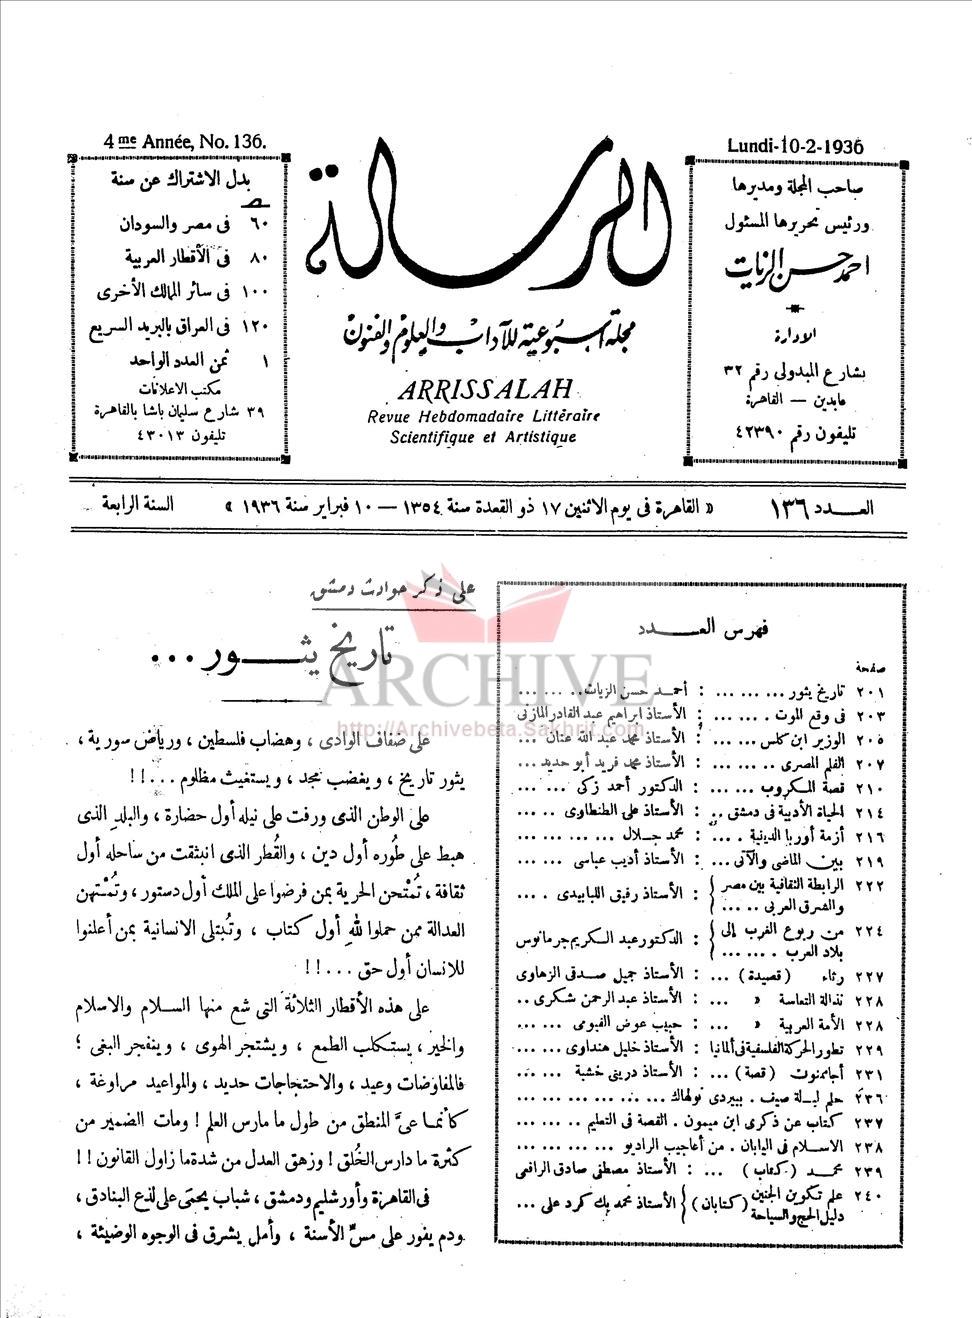 4me Année, No. 136.
Lundi-10-2-1936
صاحب المجلة ومديرها
ورئيس تحريرها المسئول
احمد حسن الزيات
الادارة
بشارع المبدولى رقم ٣٢
عابدين — القاهرة
تليفون رقم ٤٢٣٩٠
الرسالة
مجلة أسبوعية للآداب والعلوم والفنون
ARRISSALAH
Revue Hebdomadaire Littéraire
Scientifique et Artistique
بدل الاشتراك عن سنة
٦٠ فى مصر والسودان
٨٠ فى الأقطار العربية
١٠٠ فى سائر الممالك الأخرى
١٢٠ فى العراق بالبريد السريع
١ ثمن العدد الواحد
مكتب الاعلانات
٣٩ شارع سليمان باشا بالقاهرة
تليفون ٤٣٠١٣
العـــدد ١٣٦ « القاهرة فى يوم الاثنين ١٧ ذو القعدة سنة ١٣٥٤ — ١٠ فبراير سنة ١٩٣٦ » السنة الرابعة
فهرس العـــدد
صفحة
٢٠١ تاريخ يثور ... ... ... : أحمد حسن الزيات ... ... ...
٢٠٣ فى وقع الموت . ... ... : الأستاذ ابراهيم عبد القادر المازنى
٢٠٥ الوزير ابن كلس ... ... : الأستاذ محمد عبد الله عنان ...
٢٠٧ القلم المصرى .. ... ... : الأستاذ محمد فريد أبو حديد ...
٢١٠ قصة المكروب ... ... : الدكتور أحمد زكى ... ...
٢١٤ الحياة الأدبية فى دمشق .. : الأستاذ على الطنطاوى .. ...
٢١٦ أزمة أوربا الدينية . ... : محمد جلال ... ... ... ...
٢١٩ بين الماضى والآتى ... : الأستاذ أديب عباسى .. ...
٢٢٢ الرابطة الثقافية بين مصر والشرق العربى .. ... : الأستاذ رفيق اللبابيدى . ...
٢٢٤ من ربوع الغرب إلى بلاد العرب . ... ... : الدكتور عبد الكريم جرمانوس
٢٢٧ رثاء ( قصيدة ) ... : الأستاذ جميل صدقى الزهاوى
٢٢٨ نذالة التعاسة » ... : الأستاذ عبد الرحمن شكرى ..
٢٢٨ الأمة العربية » ... : حبيب عوض الفيومى ... ...
٢٢٩ تطور الحركة الفلسفية فى ألمانيا : الأستاذ خليل هنداوى ... ...
٢٣١ أجاممنوت ( قصة ) ... : الأستاذ درينى خشبة ... ...
٢٣٦ حلم ليلة صيف . بيبردى نولهاك ... ... ... ... ... ...
٢٣٧ كتاب عن ذكرى ابن ميمون . القصة فى التعليم .. ... ...
٢٣٨ الاسلام فى اليابان . من أعاجيب الراديو ... ... ... ...
٢٣٩ محمد ( كتاب ) ... : الأستاذ مصطفى صادق الرافعى
٢٤٠ علم تكوين الجنين دليل الحج والسياحة (كتابان) : الأستاذ محمد بك كرد على ...
على ذكر حوادث دمشق
تاريخ يثـــور ...
على ضفاف الوادى ، وهضاب فلسطين ، ورياض سورية ،
يثور تاريخ ، ويغضب مجد ، ويستغيث مظلوم ...!!
على الوطن الذى ورفت على نيله أول حضارة ، والبلد الذى
هبط على طُوره أول دين ، والقُطر الذى انبثقت من ساحله أول
ثقافة ، تُمتْحن الحرية بمن فرضوا على الملك أول دستور ، وتُمْتهن
العدالة ممن حملوا للهِ أول كتاب ، وتُبتلى الانسانية بمن أعلنوا
للانسان أول حق ...!!
على هذه الأقطار الثلاثة التى شع منها السلام والاسلام
والخير ، يستكلب الطمع ، ويشتجر الهوى ، وينفجر البغى ؛
فالمفاوضات وعيد ، والاحتجاجات حديد ، والمواعيد مراوغة ،
كأنما عىَّ المنطق من طول ما مارس العلم ! ومات الضمير من
كثرة ما دارس الخُلق ! وزهق العدل من شدة ما زاول القانون !!
فى القاهرة وأورشليم ودمشق ، شباب يحمَى على لذع البنادق ،
ودم يفور على مسِّ الأسنة ، وأمل يشرق فى الوجوه الوضيئة ،
ARCHIVE
http://Archivebeta.Sakhrit.com